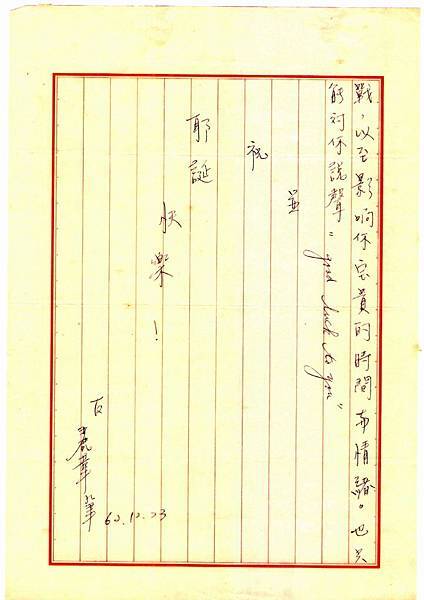 戰，以至影响你宝貴的時間与情緒。也只
能对你説聲“good luck to you”
並
祝
耶誕
快樂！
友
華筆 62.12.23